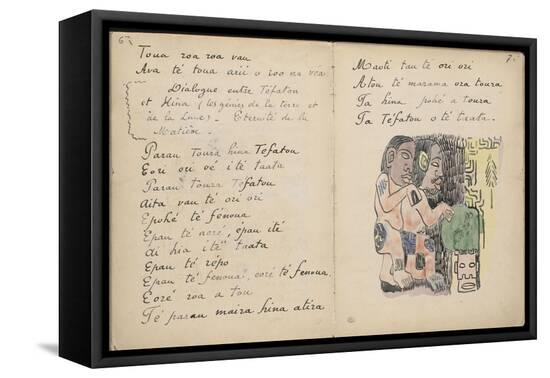 6.
Toua roa roa vau
Ava té toua arii o roo na vea
Dialogue entre Téfatou
et Hina (les génies de la terre et
de la Lune) - Eternité de la
Matière.
Parau Toura hina Téfatou
Eori oi oé ité taata
Parau toura Téfatou
Aita vau té ori ori
Epohé té fénoua
Epau té néré, épau ité
di hia ité taata
Epau té répo
Epau té fenoua, eoré té fenoua
Eoré roa a tou
Té parau maira hina atira
7.
Maoti tau té ori ori
Atou té marama ora toura
Ta hina pohé a toura
Ta Téfatou o té taata.